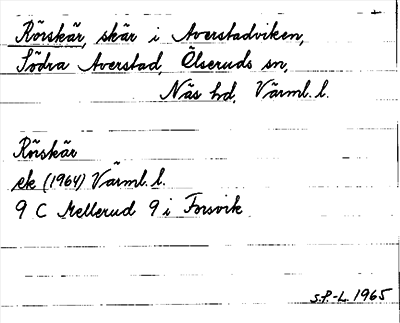 Rörskär, skär i Averstadviken,
Södra Averstad, Ölseruds sn,
Näs hd, Värml. l.
Rörskär
ek (1964) Värml. l.
9 C Mellerud 9 i Forsvik
S.P.-L. 1965